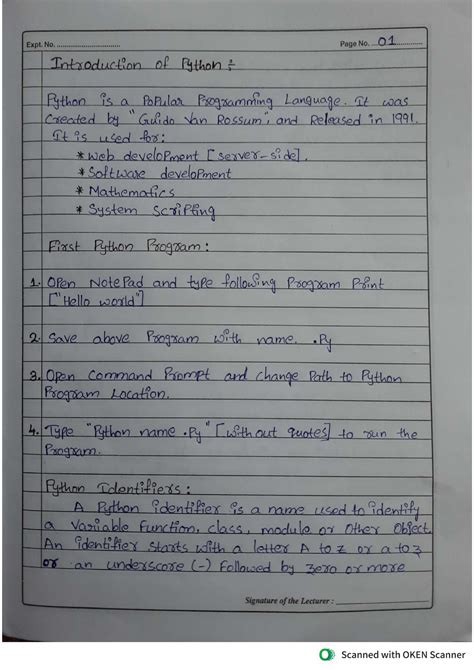 Expt. No. ............................ Page No. ...01............
Introduction of Python :-
Python is a Popular Programming Language. It was
Created by "Guido Van Rossum", and Released in 1991.
It is used for:
* Web development [server-side].
* Software development
* Mathematics
* System Scripting
First Python Program:
1. Open NotePad and type following Program Print
["Hello world"]
2. Save above Program with name. .Py
3. Open Command Prompt and change Path to Python
Program Location.
4. Type "Python name .Py" [with out quotes] to run the
Program.
Python Identifiers:
A Python identifier is a name used to identify
a variable function, class, module or Other Object.
An identifier starts with a letter A to Z or a to z
or an underscore (-) Followed by zero or more
Signature of the Lecturer : ____________________
Scanned with OKEN Scanner